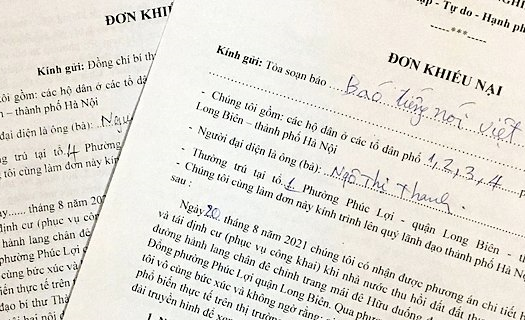 ĐƠN KHIẾU
Kính gửi: Đồng chí bí th
tôi gồm: các hộ dân ở các tổ dân
– thành phố Hà Nội
đại diện là ông (bà): Ngu
ng trú tại tổ 4 Phường
tôi cùng làm đơn này kính
ày...... tháng 8 năm 202
định cư (phục vụ công
nh lang chân đê chỉnh
ờng Phúc Lợi quận Lo
cùng bức xúc và khôn
biến thực tế trên thị t
đạo bí thư Thàn
- Tự do - Hạnh ph
---***---
ĐƠN KHIẾU NẠI
Kính gửi: Tòa soạn báo Báo tiếng nói việt
- Chúng tôi gồm: các hộ dân ở các tổ dân phố 1, 2, 3, 4
Long Biên – thành phố Hà Nội
- Người đại diện là ông (bà): Ngô Thị Thanh.
- Thường trú tại tổ 1 Phường Phúc Lợi - quận Long Biên - th
- Chúng tôi cùng làm đơn này kính trình lên quý lãnh đạo thành phố Hà N
sau :
Ngày 20 tháng 8 năm 2021 chúng tôi có nhận được phương án chi tiết b
và tái định cư (phục vụ công khai) khi nhà nước thu hồi đất đất th
đường hành lang chân đê chỉnh trang mái đê Hữu đuống
Đồng phường Phúc Lợi quận Long Biên. Qua phương
tôi vô cùng bức xúc và không ngờ rằng:
phổ biến thực tế trên thị trường
đài truyền hình để xe